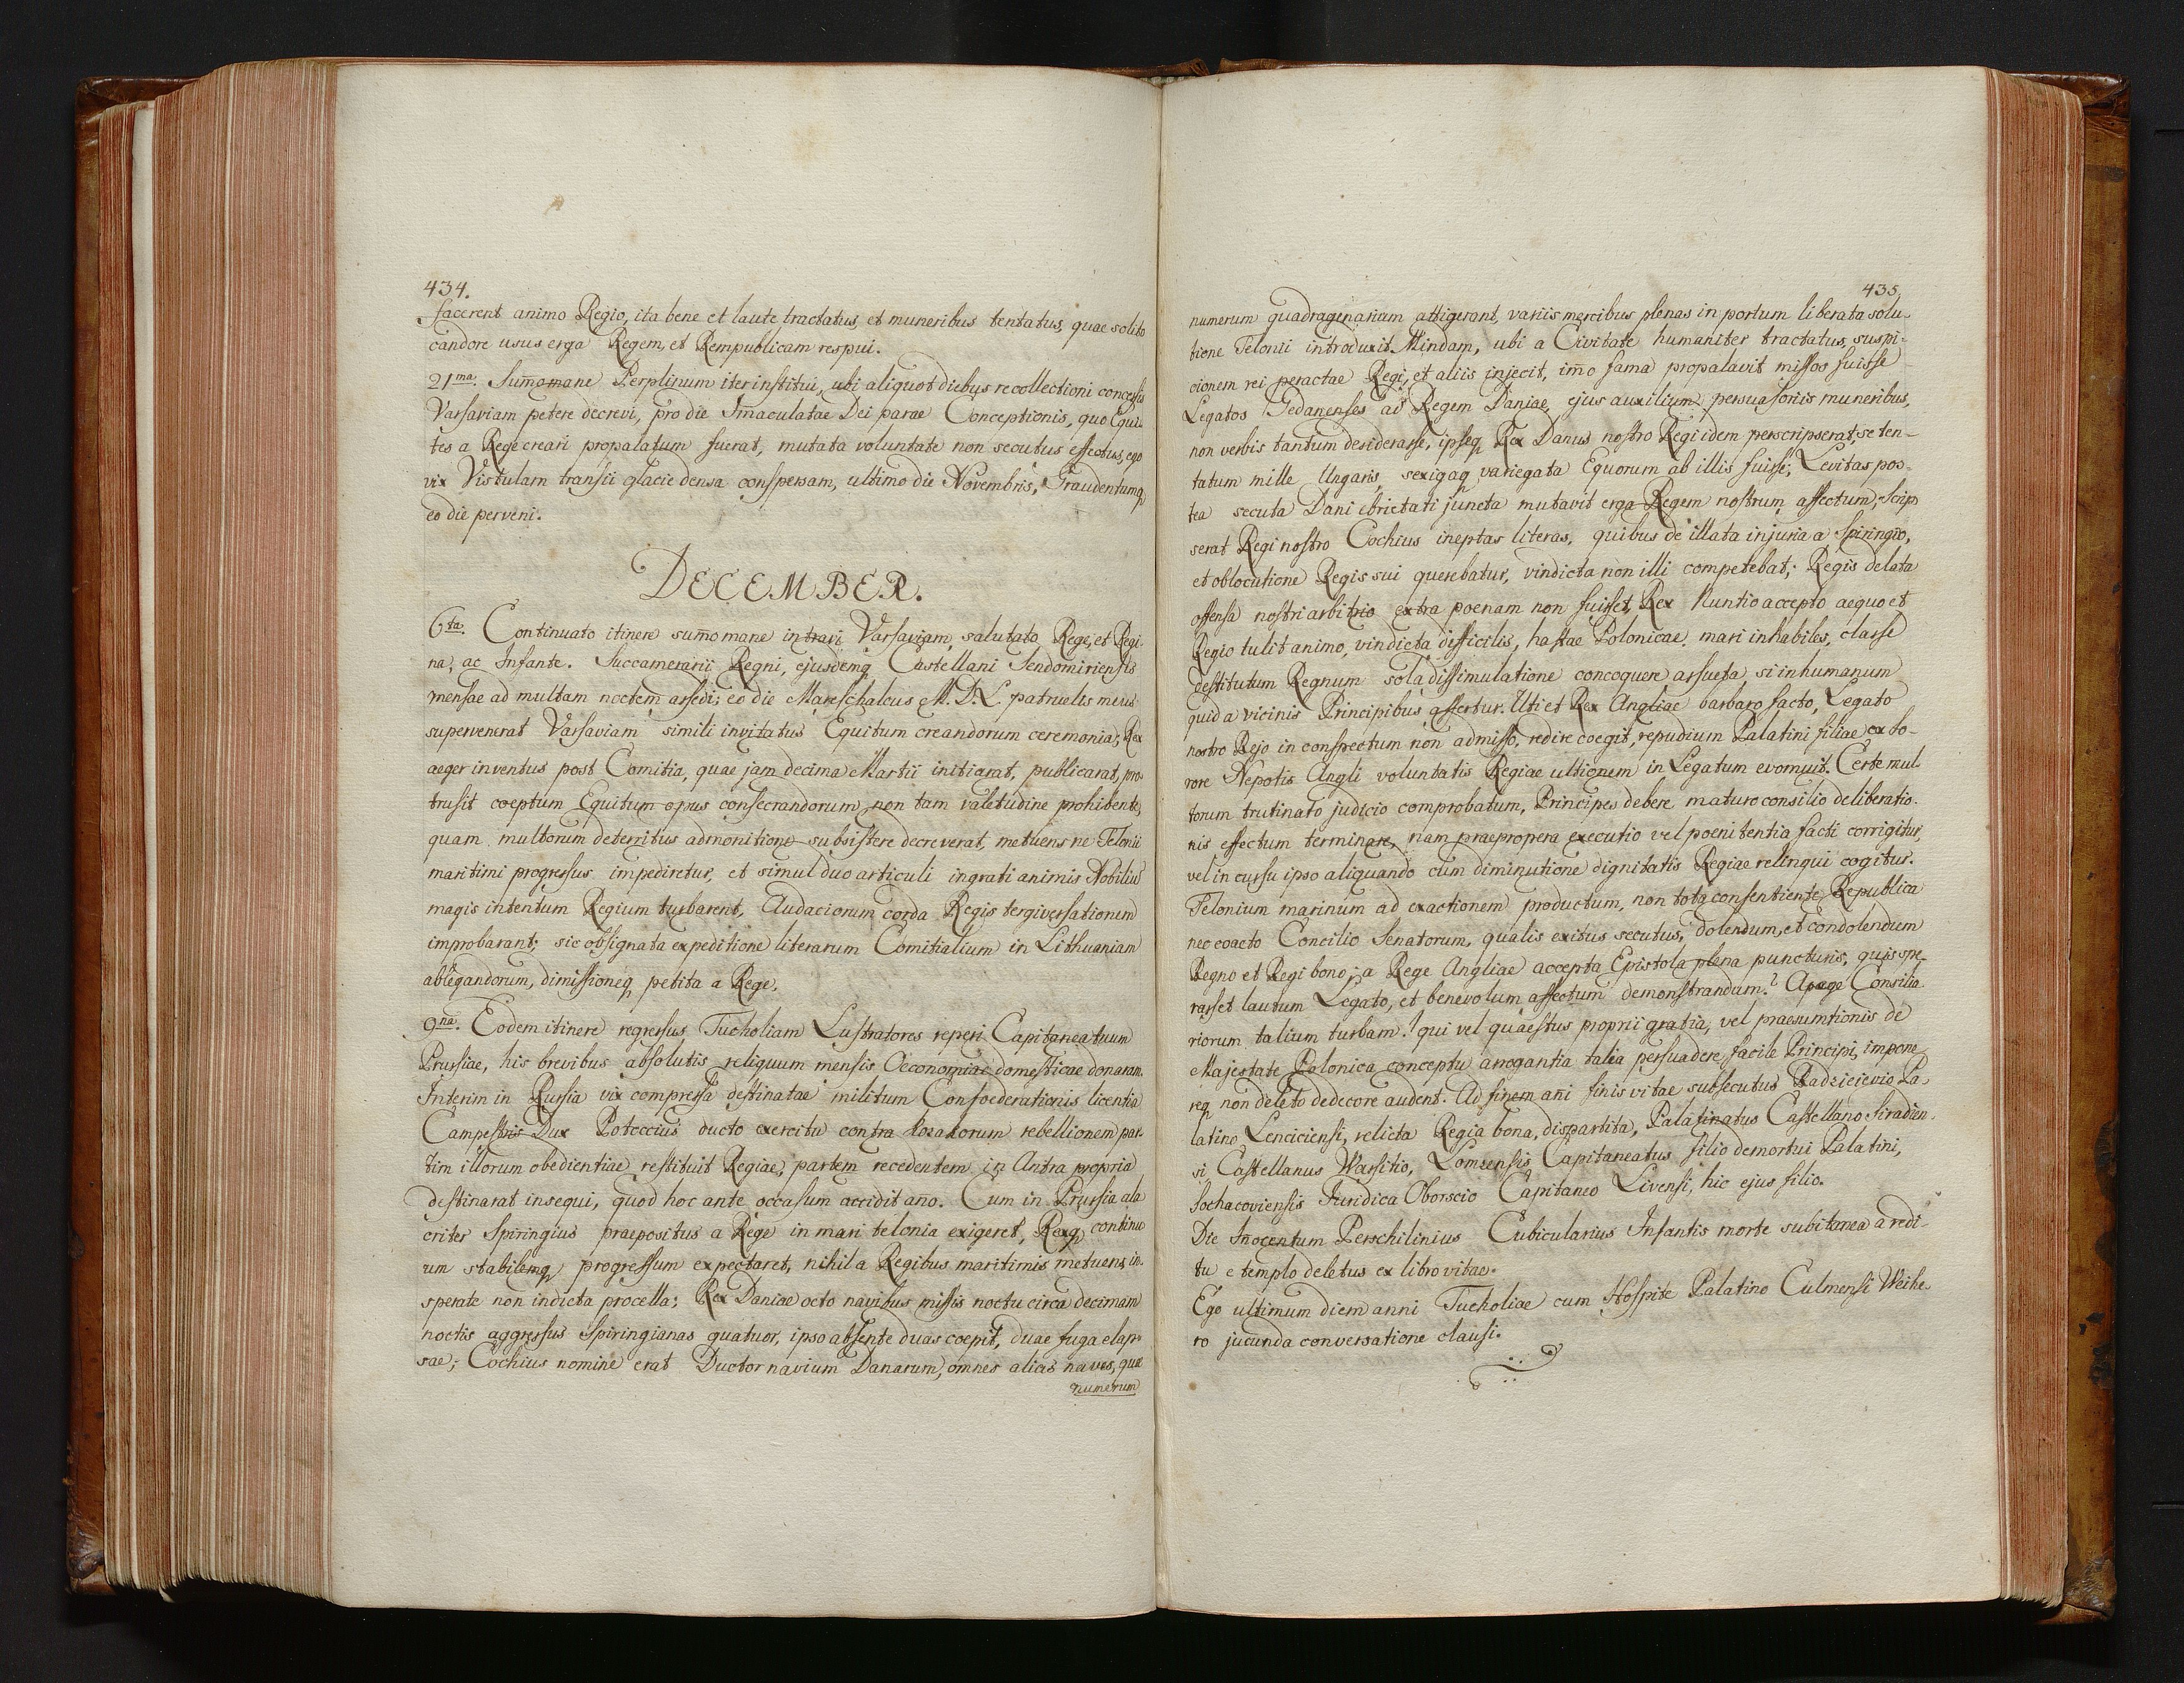 434.
facerent animo Regio, ita bene et laute tractatus, et muneribus tentatus, quae solito
candore usus erga Regem, et Rempublicam respui.
21ma. Sum̄omane Perplinum iter institui, ubi aliquot diebus recollectioni concessis
Varsaviam petere decrevi, pro die Im̄aculatae Dei parae Conceptionis, quo Equi-
tes a Rege creari propalatum fuerat, mutata voluntate non secutus effectus, ego
vix Vistulam transii glacie densa conspersam, ultimo die Novembris, Graudentumq
eo die perveni.
DECEMBER.
6ta. Continuato itinere sum̄o mane intravi Varsaviam, salutato Rege, et Regi-
na, ac Infante. Succamerarii Regni, ejusdemq Castellani Sendomiriensis
mensae ad multam noctem assedi; eo die Mareschalcus M. D. L. patruelis meus
supervenerat Varsaviam simili invitatus Equitum creandorum ceremonia; Rex
aeger inventus post Comitia, quae jam decima Martii initiarat, publicarat, pro-
trusit coeptum Equitum opus consecrandorum, non tam valetudine prohibente,
quam multorum deterritus admonitione subsistere decreverat, metuens ne Telonii
maritimi progressus impediretur, et simul duo articuli ingrati animis Nobiliū
magis intentum Regium turbarent, Audaciorum corda Regis tergiversationem
improbarant; sic obsignata expeditione literarum Comitialium in Lithuaniam
ablegandorum, dimissioneq petita a Rege.
9na. Eodem itinere regressus Tucholiam Lustratores reperi Capitaneatuum
Prussiae, his brevibus absolutis reliquum mensis Oeconomiae domesticae donaram.
Interim in Russia vix compressa destinatae militum Confoederationis licentia
Campestris Dux Potoccius ducto exercitu contra Kozakorum rebellionem par-
tim illorum obedientiae restituit Regiae, partem recedentem in Antra propria
destinarat insequi, quod hoc ante occasum accidit ano. Cum in Prussia ala
criter Spiringius praepositus a Rege in mari telonia exigeret, Rexq continu
um stabilemq progressum expectaret, nihil a Regibus maritimis metuens in-
sperate non indicta procella; Rex Daniae octo navibus missis noctu circa decimam
noctis aggressus Spiringianas quatuor, ipso absente duas coepit, duae fuga elap-
sae; Cochius nomine erat Ductor navium Danarum, omnes alias naves, quae
numerum
435.
numerum quadragenarium attigerant, variis mercibus plenas in portum liberata solu-
tione Telonii introduxit. Mindam, ubi a Civitate humaniter tractatus, suspi-
cionem rei peractae Regi, et aliis injecit, im̄o fama propalavit missos fuisse
Legatos Gedanenses ad Regem Daniae, ejus auxilium persuasoriis muneribus,
non verbis tantum desiderasse, ipseq Rex Danus nostro Regi idem perscripserat, se ten-
tatum mille Ungaris, sexigaq variegata Equorum ab illis fuisse; Levitas pos-
tea secuta Dani ebrietati juncta mutavit erga Regem nostrum affectum; Scrip
serat Regi nostro Cochius ineptas literas, quibus de illata injuria a Spiringio,
et oblocutione Regis sui querebatur, vindicta non illi competebat; Regis delata
offensa nostri arbitrio extra poenam non fuisset, Rex Nuntio accepto aequo et
Regio tulit animo, vindicta difficilis, hastae Polonicae mari inhabiles, classe
destitutum Regnum sola dissimulatione concoquere assueta, si inhumanum
quid a vicinis Principibus affertur. Uti et Rex Angliae barbaro facto, Legato
nostro Rejo in conspectum non admisso, redire coegit, repudium Palatini filiae ex so-
rore Nepotis Angli voluntatis Regiae ultionem in Legatum evomuit. Certe mul-
torum trutinato judicio comprobatum, Principes debere maturo consilio deliberatio-
nis effectum terminare, nam praepropera executio vel poenitentia facti corrigitur,
vel in cursu ipso aliquando cum diminutione dignitatis Regiae relinqui cogitur.
Telonium marinum ad exactionem productum, non tota consentiente Republica
nec coacto Concilio Senatorum, qualis exitus secutus, dolendum, et condolendum
Regno et Regi bono; a Rege Angliae accepta Epistola plena puncturis, quis spe-
rasset lautum Legato, et benevolum affectum demonstrandum? Apage Consilia
riorum talium turbam! qui vel quaestus proprii gratia, vel praesumtionis de
Majestate Polonica conceptu arrogantia talia persuadere facile Principi, impone-
req non deleto dedecore audent. Ad finem an̄i finis vitae subsecutus Radeicievio Pa-
latino Lenciciensi, relicta Regia bona, dispartita, Palatinatus Castellano Siradien-
si, Castellanus Warsitio, Lomsensis Capitaneatus filio demortui Palatini,
Sochacoviensis Juridica Oborscio Capitaneo Livensi, hic ejus filio.
Die In̄ocentum Perschilinius Cubicularius Infantis morte subitanea a redi-
tu e templo deletus ex libro vitae.
Ego ultimum diem anni Tucholiae cum Hospite Palatino Culmensi Weihe-
ro jucunda conversatione clausi.